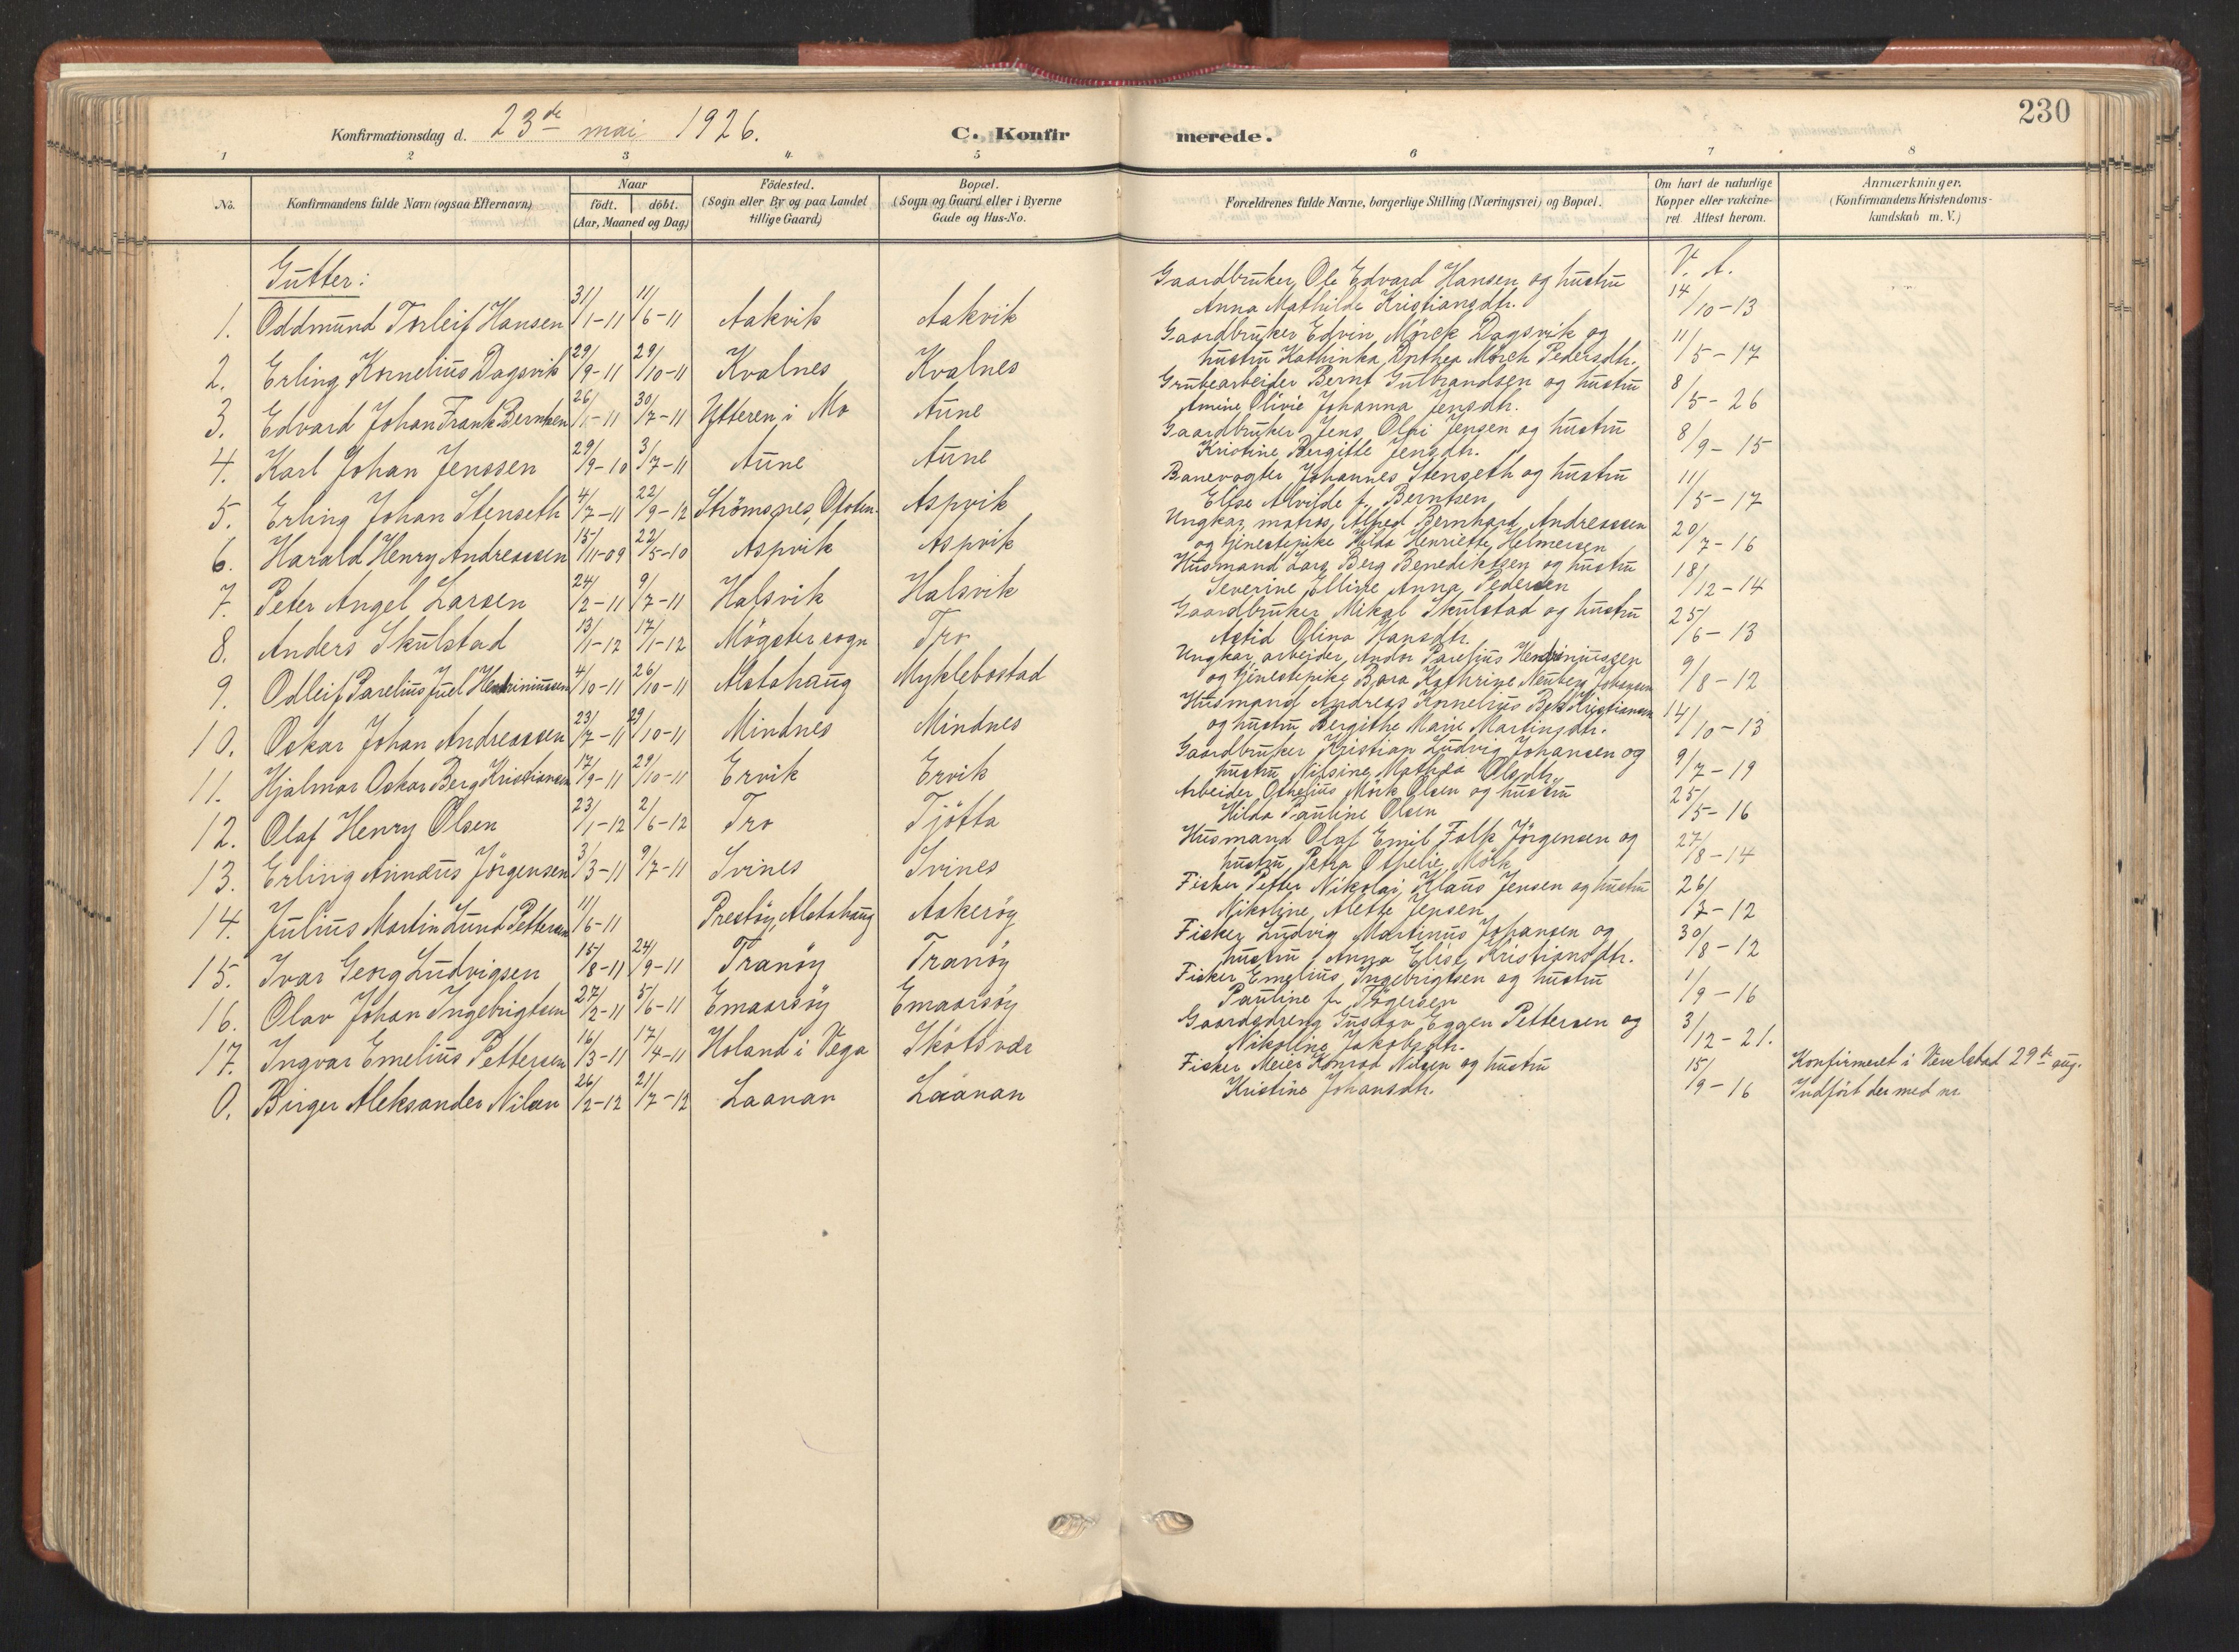 230
Konfirmationsdag d. 23de mai 1926. C. Konfirmerede.
1 2 3 4 5 6 7 8
No. Konfirmandens fulde Navn (ogsaa Efternavn) Naar födt. döbt. (Aar, Maaned og Dag) Födested. (Sogn eller By og paa Landet tillige Gaard) Bopæl. (Sogn og Gaard eller i Byerne Gade og Hus-No. Forældrenes fulde Navne, borgerlige Stilling (Næringsvei) og Bopæl. Om havt de naturlige Kopper eller vakcineret. Attest herom. Anmærkninger. (Konfirmandens Kristendomskundskab m. V.)
Gutter: V. A.
1. Oddmund Torleif Hansen 31/1-11 11/6-11 Aakvik Aakvik Gaardbruker Ole Edvard Hansen og hustru 14/10-13
Anna Mathilde Kristiansdtr.
2. Erling Kornelius Dagsvik 29/9-11 29/10-11 Kvalnes Kvalnes Gaardbruker Edvin Mörck Dagsvik og 11/5-17
hustru Kathinka Dorthea Mörch Pedersdtr.
3. Edvard Johan Frank Berntsen 26/1-11 30/7-11 Ytteren i Mo Aune Grubearbeider Bernt Gulbrandsen og hustru 8/5-26
Amine Olivie Johanna Jensdtr.
4. Karl Johan Jenssen 29/9-10 3/7-11 Aune Aune Gaardbruker Jens Olai Jensen og hustru 8/9-15
Kristine Bergitte Jensdtr.
5. Erling Johan Stenseth 4/7-11 22/9-12 Strömsnes, Ofoten. Aspvik Banevogter Johannes Stenseth og hustru 11/5-17
Elise Alvilde f. Berntsen
6. Harald Henry Andreassen 15/11-09 22/5-10 Aspvik Aspvik Ungkar, matros Alfred Bernhard Andreassen 20/7-16
og tjenestepike Hilda Henriette Helmersen
7. Peter Angel Larsen 24/2-11 9/7-11 Halsvik Halsvik Husmand Lars Berg Benediktsen og hustru 18/12-14
Severine Elline Anna Pedersen
8. Anders Skulstad 13/1-12 17/1-12 Mögster sogn Tro Gaardbruker Mikal Skulstad og hustru 25/6-13
Astid Olina Hansdtr.
9. Odleif Parelius Juel Hendriniussen 4/10-11 26/10-11 Alstahaug Myklebostad Ungkar, arbeider Andor Parelius Hendriniussen 9/8-12
og tjenestepike Bara Kathrine Neuberg Johansen
10. Oskar Johan Andreassen 23/7-11 29/10-11 Mindnes Mindnes Husmand Andreas Kornelius Bek Kristiansen 14/10-13
og hustru Bergithe Marie Martinsdtr.
11. Hjalmar Oskar Berg Kristiansen 17/9-11 29/10-11 Ervik Ervik Gaardbruker Kristian Ludvig Johansen og 9/7-19
hustru Nilsine Mathea Olsdtr.
12. Olaf Henry Olsen 23/1-12 2/6-12 Tro Tjötta Arbeider Othelius Mörk Olsen og hustru 25/5-16
Hilda Pauline Olsen
13. Erling Annæus Jörgensen 3/3-11 9/7-11 Svines Svines Husmand Olaf Emil Falk Jörgensen og 27/8-14
hustru Petra Othelie Mörk
14. Julius Martin Lund Pettersen 11/6-11 Prestöy, Alstahaug Aakeröy Fisker Petter Nikolai Klaus Jensen og hustru 26/3-12
Nikoline Alette Jensen
15. Ivar Georg Ludvigsen 15/8-11 24/9-11 Tranöy Tranöy Fisker Ludvig Martinus Johansen og 30/8-12
hustru Anna Elise Kristiansdtr.
16. Olav Johan Ingebrigtsen 27/2-11 5/6-11 Emaarsöy Emaarsöy Fisker Emelius Ingebrigtsen og hustru 1/9-16
Pauline f.
17. Ingvar Emelius Pettersen 16/3-11 17/4-11 Holand i Vega Skötsvær Gaardsdreng Gustav Eggen Pettersen og 3/12-21.
Nikoline Jakobsdtr.
0. Birger Aleksander Nilsen 26/2-12 21/7-12 Laanan Laanan Fisker Meier Konrad Nilsen og hustru 15/9-16 Konfirmeret i Vevelstad 29de aug.
Kristine Johansdtr. Indfört der med nr.